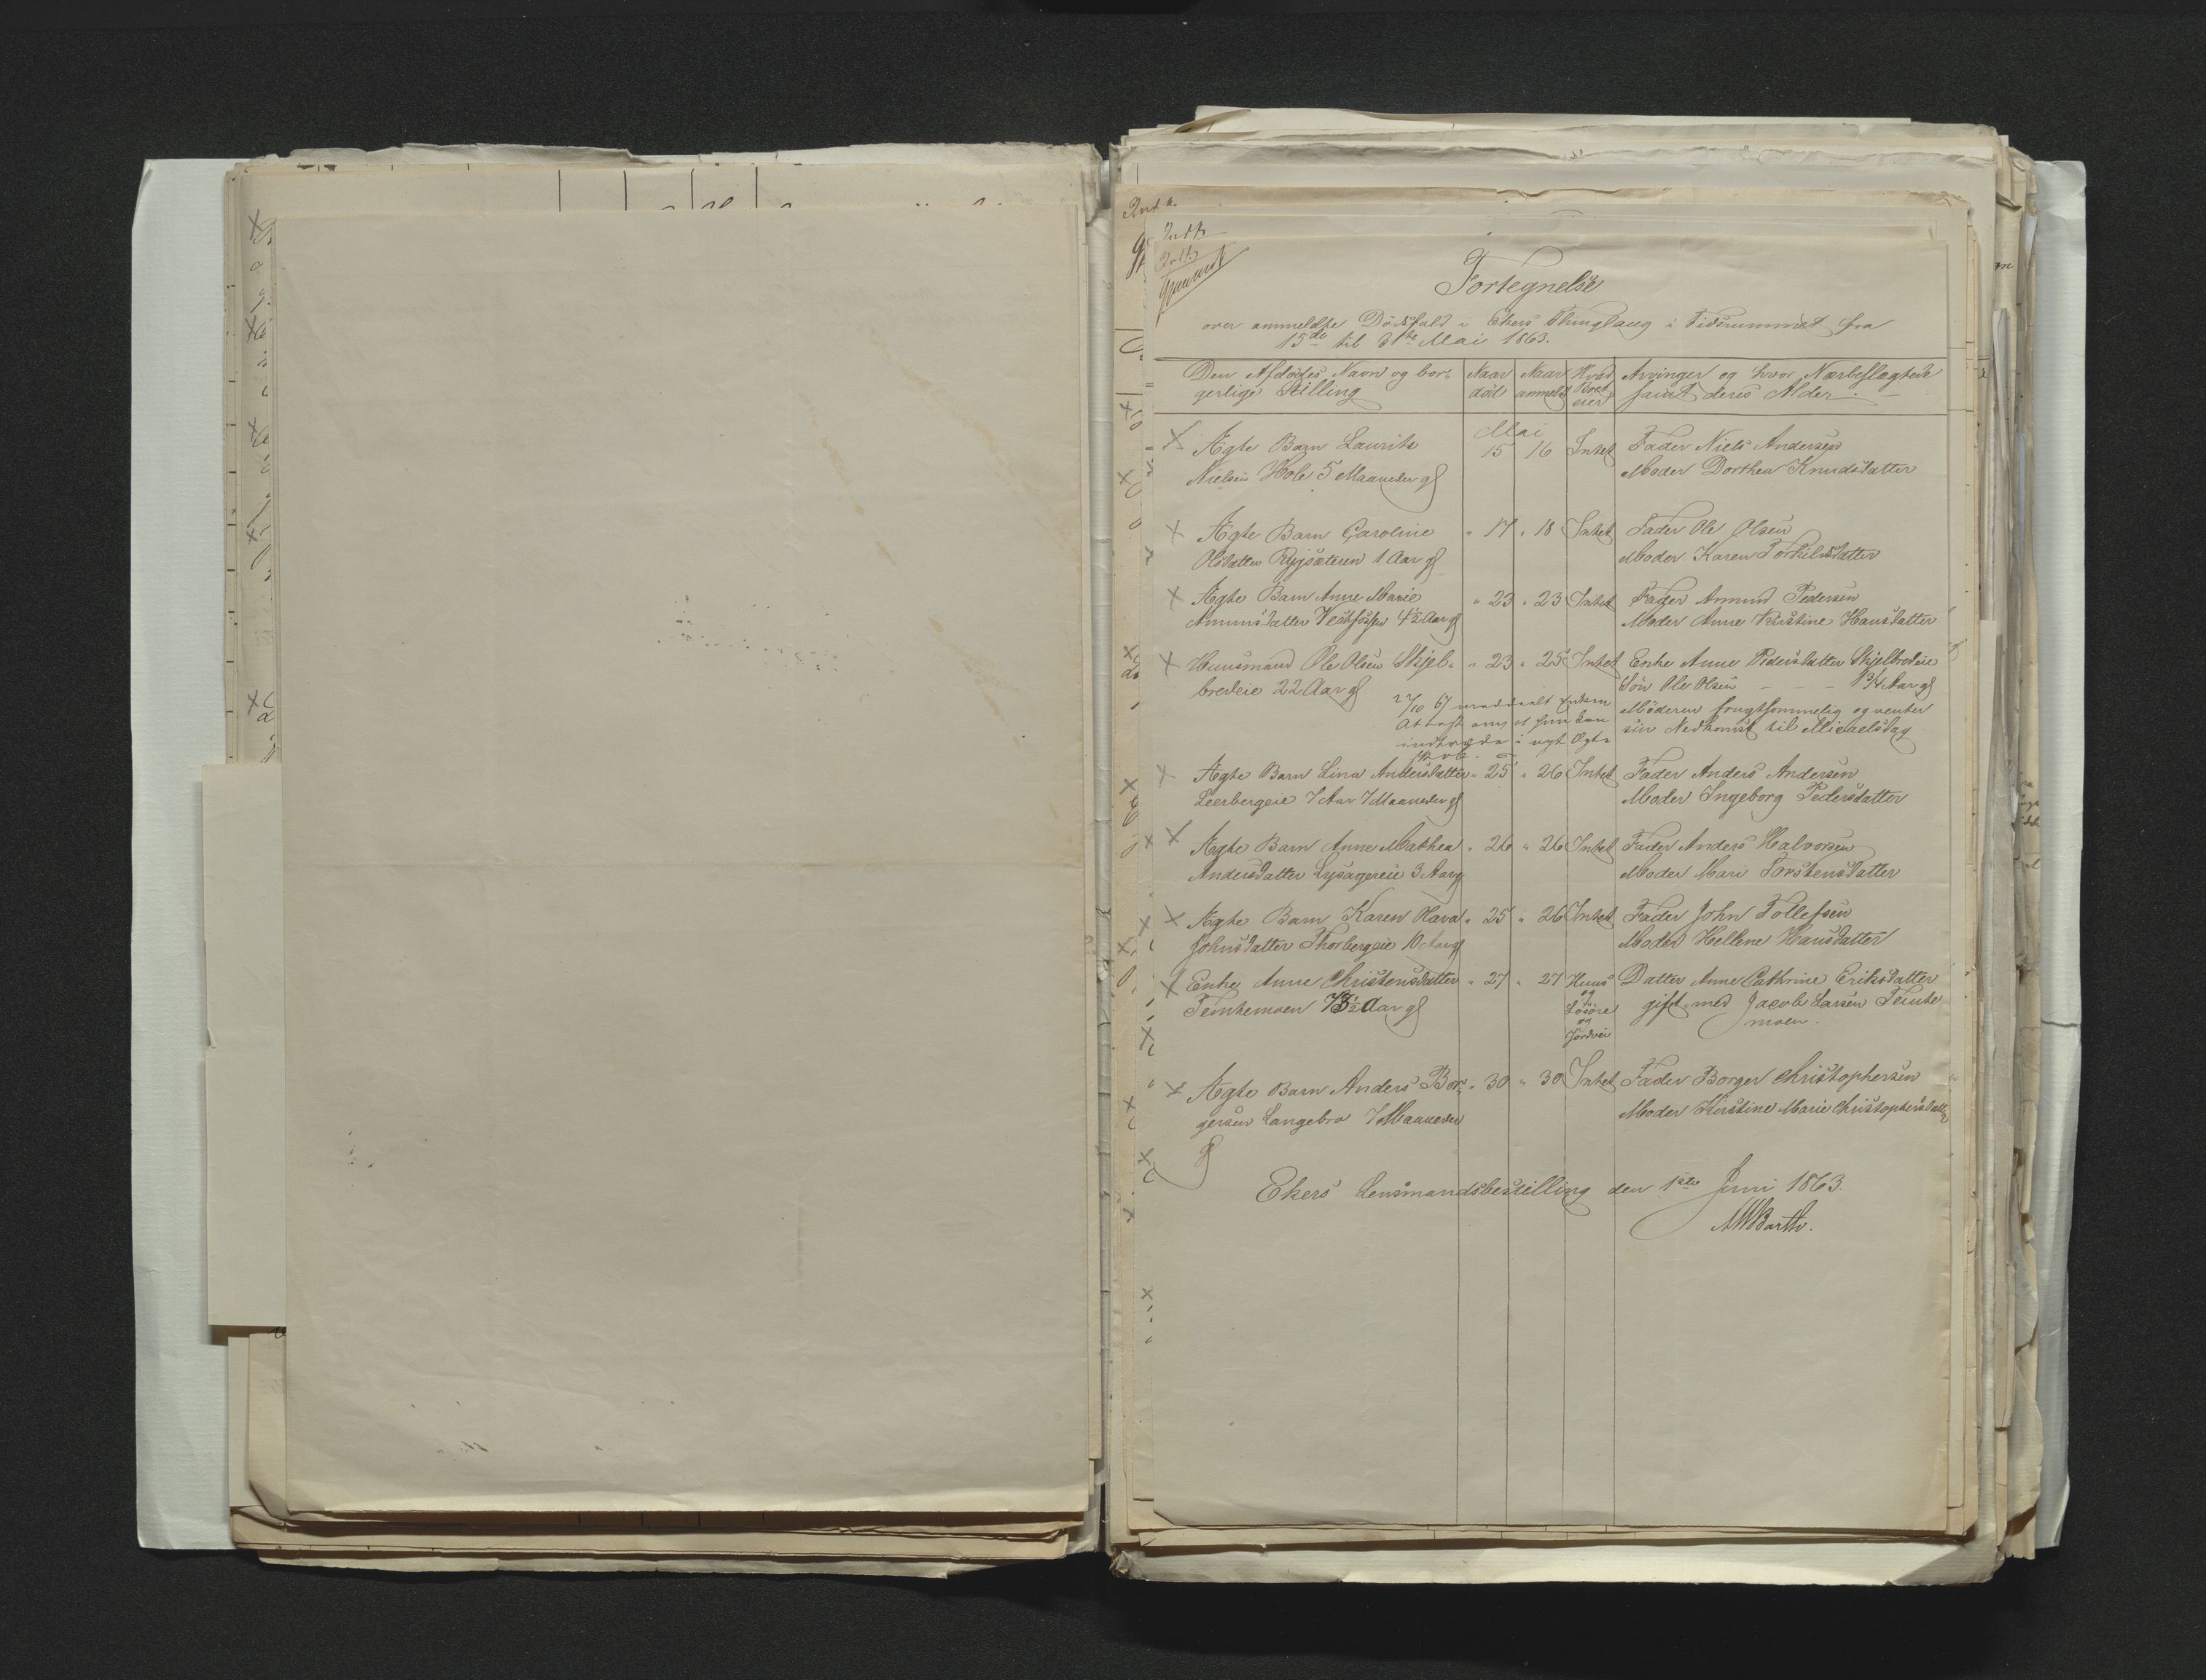 Fortegnelse
over anmeldte Dødsfald i Ekers Thinglaug i Tidsrummet fra
15de til 31te Mai 1863.
Den Afdødes Navn og bor- Naar Naar Hvad Arvinger og hvor Nærbeslægtede
gerlige Stilling død anmeldt Boet eier samt deres Alder
Mai
Ægte Barn Laurits 15 16 Intet Fader Niels Andersen
Nielsen Hole 5 Maaneder gl Moder Dorthea Knudsdatter
Ægte Barn Caroline " 17 " 18 Intet Fader Ole Olsen
Olsdatter 1 Aar gl Moder Karen Torkildsdatter
Ægte Barn Anne Marie " 23 " 23 Intet Fader Amund Pedersen
Amundsdatter Vestfossen 4½ Aar gl Moder Anne Kirstine Hansdatter
Huusmand Ole Olsen Skjel- " 23 " 25 Intet Enke Anne Pedersdatter Skjelbredeie
bredeie 22 Aar gl Søn Ole Olsen - - - 1 3/4 Aar gl
Moderen frugtsommelig og venter
sin Nedkomst til Michaelsdag
2/10 67 meddeelt Enken
Attest om at hun kan
indtræde i nyt Ægte
skab.
Ægte Barn Lina Andersdatter " 25 " 26 Intet Fader Anders Andersen
Leerbergeie 7 Aar 7 Maaneder gl Moder Ingeborg Pedersdatter
Ægte Barn Anne Mathea " 26 " 26 Intet Fader Anders Halvorsen
Andersdatter Lysagereie 3 Aar gl Moder Mari Torstensdatter
Ægte Barn Karen Olava " 25 " 26 Intet Fader John Tollefsen
Johnsdatter Thorbergeie 10 Aar gl Moder Hellene Hansdatter
Enke Anne Christensdatter " 27 " 27 Huus Datter Anne Cathrine Eriksdatter
Temtemoen Aar gl og Løsøre gift med Jacob Larsen Temte
og Jordvei moen.
Ægte Barn Anders Bor- " 30 " 30 Intet Fader Borger Christophersen
gersen Langebro 7 Maaneder Moder Kirstine Marie Christophersdatter
gl
Ekers Lensmandsbestilling den 1ste Juni 1863.
Barth.